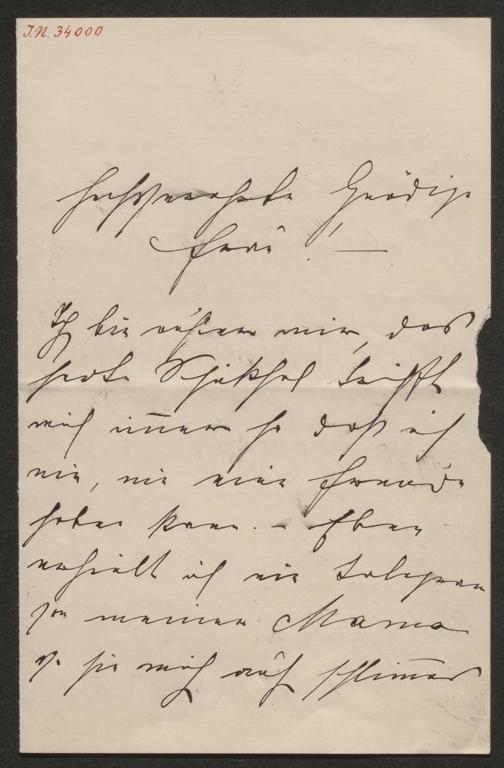 J.N. 34000
Hochverehrte Gnädige
Frau! —
Ich bin außer mir, das
Schicksal trifft
mich immer so daß ich
nie, nie eine Freude
haben kann. – Eben
erhielt ich ein Telegram
von meiner Mama
sie mich auf schlimmes